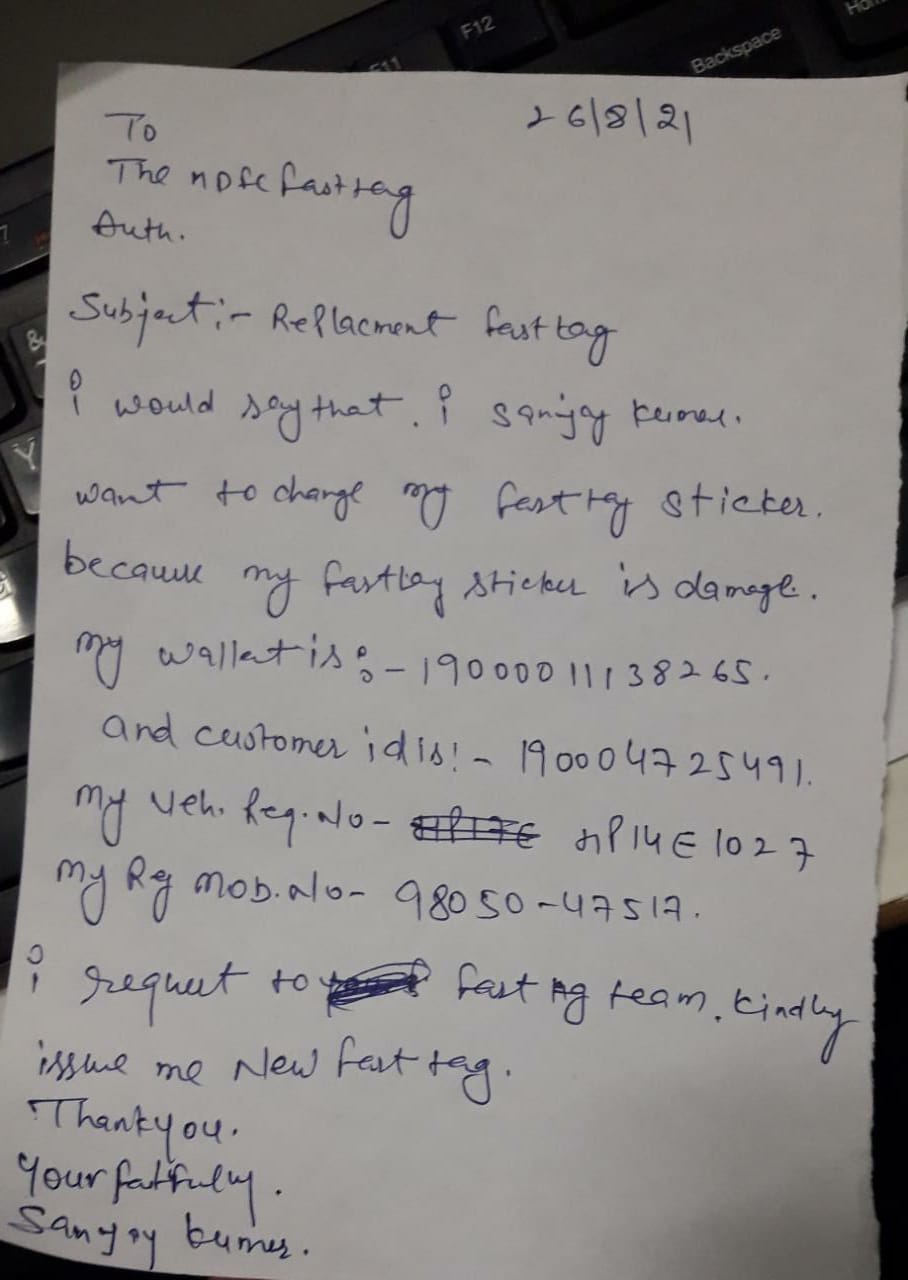 F11
F12
Backspace
26/8/21
To
The HDFC fasttag
Auth.
Subject:- Replacment fasttag
i would say that. i sanjay kumar.
want to change my fasttag sticker.
because my fasttag sticker is damage.
my wallet is :- 19000011138265.
and customer id is:- 190004725491.
my veh. Reg. No- HP14E1027
my Reg mob. No- 98050-47517.
i request to fast tag team. kindly
issue me New fast tag.
Thankyou.
Your fatfuly.
Sanjay kumar.